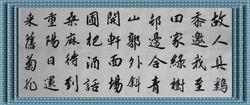 故人具鷄
黍邀我至
田家綠樹
邨邊合青
山郭外斜
開軒面場
圃把酒話
桑麻待到
重陽日還
來就菊花